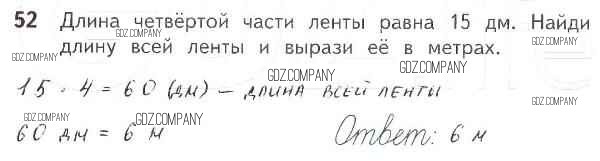 52 Длина четвёртой части ленты равна 15 дм. Найди
GDZ.COMPANY
длину всей ленты и вырази её в метрах.
GDZ.COMPANY
GDZ.COMPANY
15 · 4 = 60 (дм) – длина всей ленты
GDZ.COMPANY
GDZ.COMPANY
60 дм = 6 м Ответ: 6 м
GDZ.COMPANY
GDZ.COMPANY